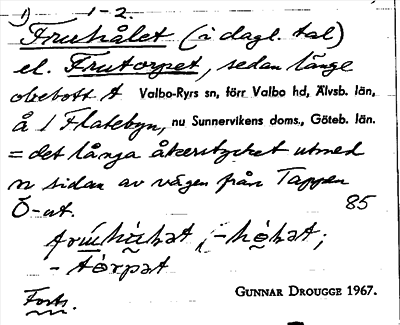 1) 1-2.
Fruhålet (i dagl. tal)
el. Frutorpet, sedan länge
obebott t Valbo-Ryrs sn, förr Valbo hd, Älvsb. län,
å 1 Flatebyn, nu Sunnervikens doms., Göteb. län.
= det långa åkerstycket utmed
n sidan av vägen från Tappen
Ö-ut. 85
-tórpət
Forts.
GUNNAR DROUGGE 1967.